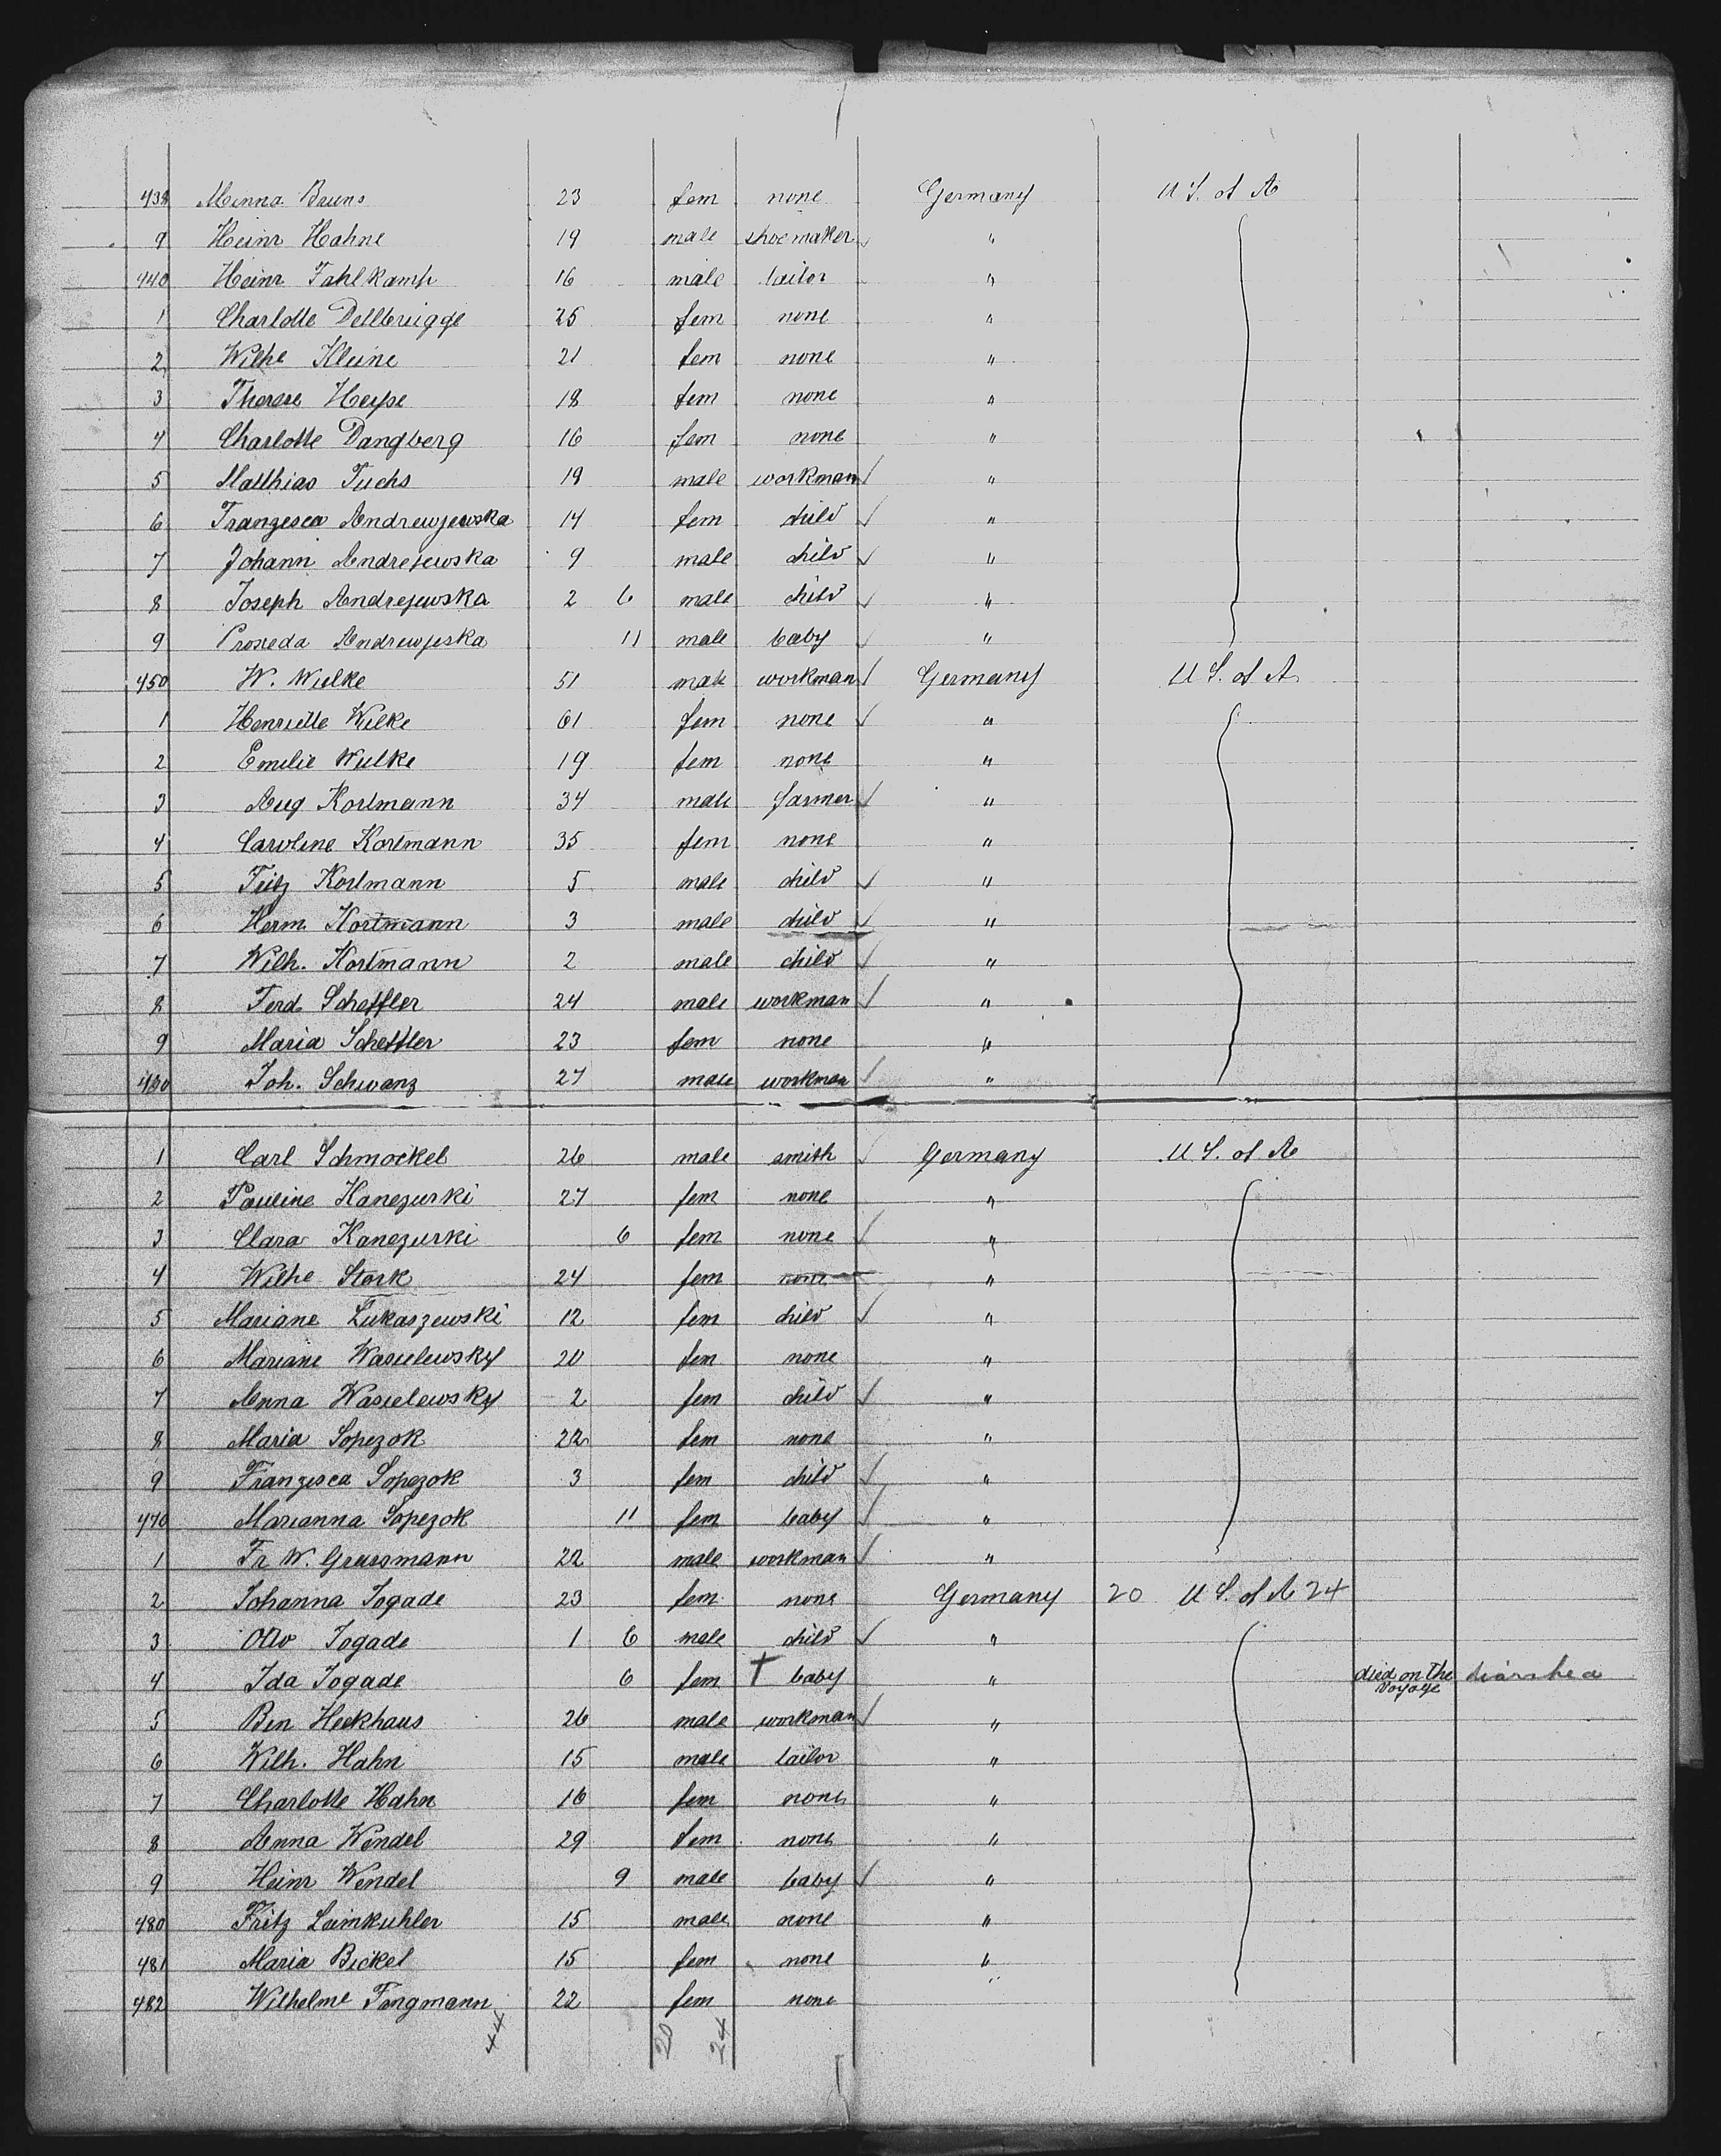 438 Minna Bruns 23 fem none Germany U S. of A
9 Heinr Hahne 19 male shoemaker "
440 Heinr Fahlkamp 16 male tailor "
1 Charlotte Dellbrugge 25 fem none "
2 Wilhe Kleine 21 fem none "
3 Therese Heype 18 fem none "
4 Charlotte Dangberg 16 fem none "
5 Matthias Fuchs 19 male workman "
6 Franzesca Andrewjewska 14 fem child "
7 Johann Andrejewska 9 male child "
8 Joseph Andrejewska 2 6 male child "
9 Proxeda Andrewjeska 11 male baby "
450 W. Wilke 51 male workman Germany U S. of A
1 Henriette Wilke 61 fem none "
2 Emilie Wilke 19 fem none "
3 Aug Kortmann 34 male farmer "
4 Caroline Kortmann 35 fem none "
5 Fritz Kortmann 5 male child "
6 Herm. Kortmann 3 male child "
7 Wilh. Kortmann 2 male child "
8 Ferd. Scheffler 24 male workman "
9 Maria Scheffler 23 fem none "
460 Joh. Schwanz 27 male workman "
1 Carl Schmockel 26 male smith Germany U S. of A
2 Pauline Kanezurki 27 fem none "
3 Clara Kanezurki 6 fem none "
4 Wilhe Stork 24 fem none "
5 Mariane Lukaszewski 12 fem child "
6 Mariane Wasielewsky 20 fem none "
7 Anna Wasielewsky 2 fem child "
8 Maria Sopezok 22 fem none "
9 Franzisca Sopezok 3 fem child "
470 Marianna Sopezok 11 fem baby "
1 Fr W. Grassmann 22 male workman "
2 Johanna Jogade 23 fem none Germany 20 U S. of A 24
3 Otto Jogade 1 6 male child "
4 Ida Jogade 6 fem † baby " died on the voyage diarrhea
5 Ben Heckhaus 26 male workman "
6 Wilh. Hahn 15 male tailor "
7 Charlotte Hahn 16 fem none "
8 Anna Wendel 29 fem none "
9 Heinr Wendel 9 male baby "
480 Fritz Leimkuhler 15 male none "
481 Maria Bickel 15 fem none "
482 Wilhelme Tongmann 22 fem none
44 20 24